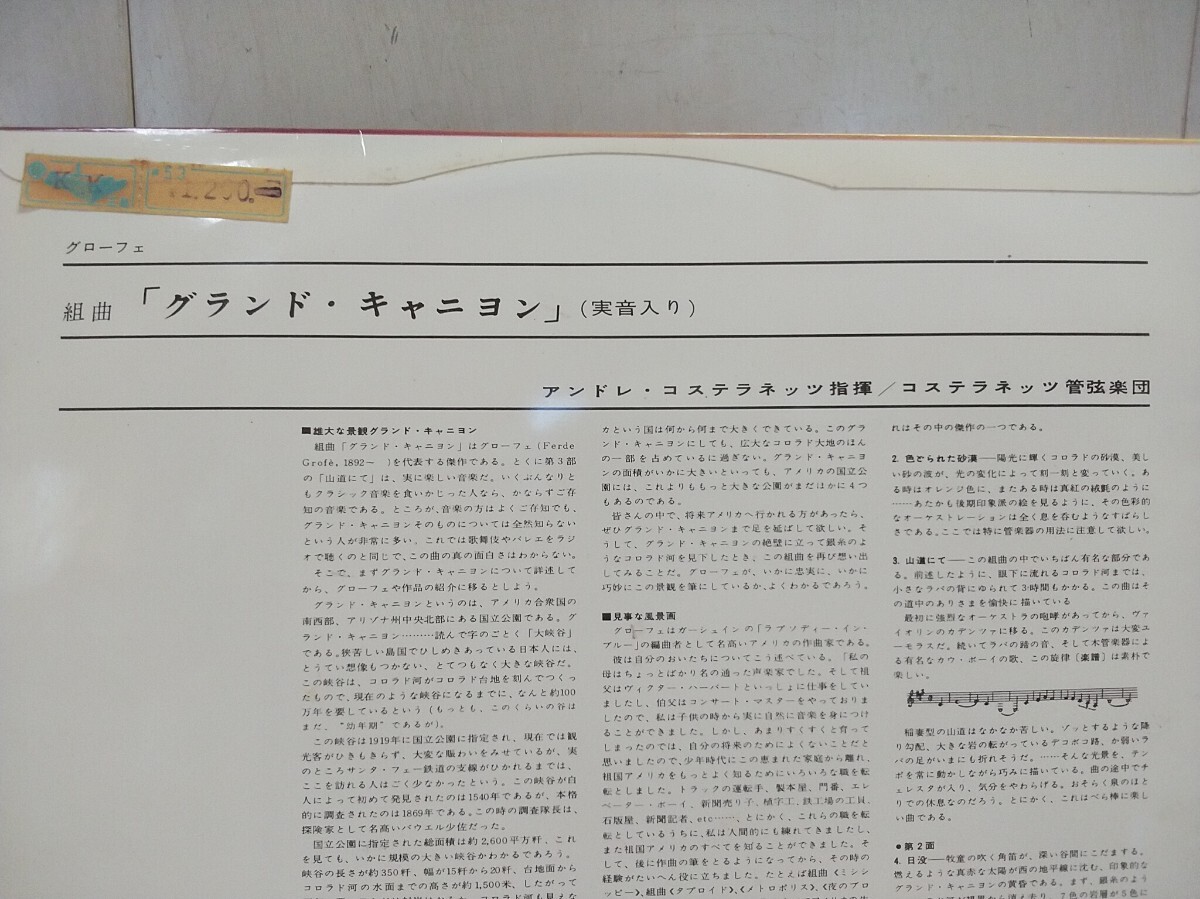 ¥1,200.
グローフェ
組曲 「グランド・キャニヨン」(実音入り)
アンドレ・コステラネッツ指揮/コステラネッツ管弦楽団
■雄大な景観グランド・キャニヨン
組曲「グランド・キャニヨン」はグローフェ(Ferde
Grofè, 1892〜　)を代表する傑作である。とくに第3部
の「山道にて」は、実に楽しい音楽だ。いくぶんなりと
もクラシック音楽を食いかじった人なら、かならずご存
知の音楽である。ところが、音楽の方はよくご存知でも、
グランド・キャニヨンそのものについては全然知らない
という人が非常に多い。これでは歌舞伎やバレエをラジ
オで聴くのと同じで、この曲の真の面白さはわからない。
そこで、まずグランド・キャニヨンについて詳述して
から、グローフェや作品の紹介に移るとしよう。
グランド・キャニヨンというのは、アメリカ合衆国の
南西部、アリゾナ州中央北部にある国立公園である。グ
ランド・キャニヨン………読んで字のごとく「大峡谷」
である。狭苦しい島国でひしめきあっている日本人には、
とうてい想像もつかない、とてつもなく大きな峡谷だ。
この峡谷は、コロラド河がコロラド台地を刻んでつくっ
たもので、現在のような峡谷になるまでに、なんと約100
万年を要しているという(もっとも、このくらいの谷は
まだ、"幼年期"であるが)。
この峡谷は1919年に国立公園に指定され、現在では観
光客がひきもきらず、大変な賑わいをみせているが、実
のところサンタ・フェー鉄道の支線がひかれるまでは、
ここを訪れる人はごく少なかったという。この峡谷が白
人によって初めて発見されたのは1540年であるが、本格
的に調査されたのは1869年である。この時の調査隊長は、
探険家として名高いパウエル少佐だった。
国立公園に指定された総面積は約2,600平方粁、これ
を見ても、いかに規模の大きい峡谷かわかるであろう。
峡谷の長さが約350粁、幅が15粁から20粁、台地面から
コロラド河の水面までの高さが約1,500米、したがって
カという国は何から何まで大きくできている。このグラ
ンド・キャニヨンにしても、広大なコロラド大地のほん
の一部を占めているに過ぎない。グランド・キャニヨ
ンの面積がいかに大きいといっても、アメリカの国立公
園には、これよりももっと大きな公園がまだほかに4つ
もあるのである。
皆さんの中で、将来アメリカへ行かれる方があったら、
ぜひグランド・キャニヨンまで足を延ばして欲しい。そ
うして、グランド・キャニヨンの絶壁に立って銀糸のよ
うなコロラド河を見下したとき、この組曲を再び想い出
してみることだ。グローフェが、いかに忠実に、いかに
巧妙にこの景観を筆にしているか、よくわかるであろう。
■見事な風景画
グローフェはガーシュインの「ラプソディー・イン・
ブルー」の編曲者として名高いアメリカの作曲家である。
彼は自分のおいたちについてこう述べている。「私の
母はちょっとばかり名の通った声楽家でした。そして祖
父はヴィクター・ハーバートといっしょに仕事をしてい
ましたし、伯父はコンサート・マスターをやっておりま
したので、私は子供の時から実に自然に音楽を身につけ
ることができました。しかし、あまりすくすくと育って
しまったのでは、自分の将来のためによくないことだと
思いましたので、少年時代にこの恵まれた家庭から離れ、
祖国アメリカをもっとよく知るためにいろいろな職を転
転としました。トラックの運転手、製本屋、門番、エレ
ベーター・ボーイ、新聞売り子、植字工、鉄工場の工員、
石版屋、新聞記者、etc……、とにかく、これらの職を転
転としているうちに、私は人間的にも練れてきましたし、
また祖国アメリカのすべてを知ることができました。そ
して、後に作曲の筆をとるようになってから、その時の
経験がたいへん役に立ちました。たとえば組曲《ミシシ
ッピー》、組曲《タブロイド》、《メトロポリス》、《夜のプロ
れはその中の傑作の一つである。
2. 色どられた砂漠——陽光に輝くコロラドの砂漠、美し
い砂の波が、光の変化によって刻一刻と変っていく。あ
る時はオレンジ色に、またある時は真紅の絨氈のように
……あたかも後期印象派の絵を見るように、その色彩的
なオーケストレーションは全く息を呑むようなすばらし
さである。ここでは特に管楽器の用法に注意して欲しい。
3. 山道にて——この組曲の中でいちばん有名な部分であ
る。前述したように、眼下に流れるコロラド河までは、
小さなラバの背にゆられて3時間もかかる。この曲はそ
の道中のありさまを愉快に描いている
最初に強烈なオーケストラの咆哮があってから、ヴァ
イオリンのカデンツァに移る。このカデンツァは大変ユ
ーモラスだ。続いてラバの蹄の音、そして木管楽器によ
る有名なカウ・ボーイの歌、この旋律〔楽譜〕は素朴で
楽しい。
稲妻型の山道はなかなか苦しい。ゾッとするような降
り勾配、大きな岩の転がっているデコボコ路、か弱いラ
バの足がいまにも折れそうだ。……そんな光景を、テン
ポを常に動かしながら巧みに描いている。曲の途中でチ
ェレスタが入り、気分をやわらげる。おそらく泉のほと
りでの休息なのだろう。とにかく、これはべら棒に楽し
い曲である。
●第2面
4. 日没——牧童の吹く角笛が、深い谷間にこだまする。
燃えるような真赤な太陽が西の地平線に沈む、印象的な
グランド・キャニヨンの黄昏である。まず、銀糸のよう